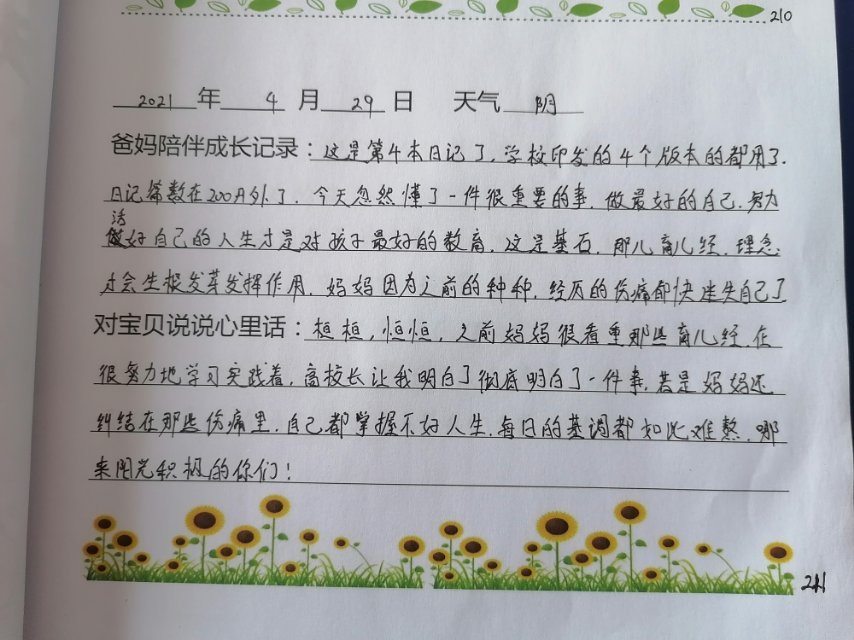 210
2021 年 4 月 29 日 天气 阴
爸妈陪伴成长记录：这是第4本日记了，学校印发的4个版本的都用了.
日记篇数在200月外了，今天忽然懂了一件很重要的事，做最好的自己，努力
活
做好自己的人生才是对孩子最好的教育，这是基石，那儿育儿经，理念，
才会生根发芽发挥作用，妈妈因为之前的种种，经历的伤痛都快迷失自己了
对宝贝说说心里话：桓桓，恒恒，之前妈妈很看重那些育儿经，在
很努力地学习实践着，高校长让我明白了彻底明白了一件事，若是妈妈还
纠结在那些伤痛里，自己都掌握不好人生，每日的基调都如此难熬，哪
来阳光积极的你们！
211